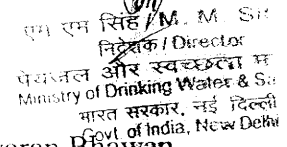 एम एम सिंह / M. M. Si
निदेशक / Director
पेयजल और स्वच्छता म
Ministry of Drinking Water & Sa
भारत सरकार, नई दिल्ली
Govt. of India, New Delhi
Bhawan